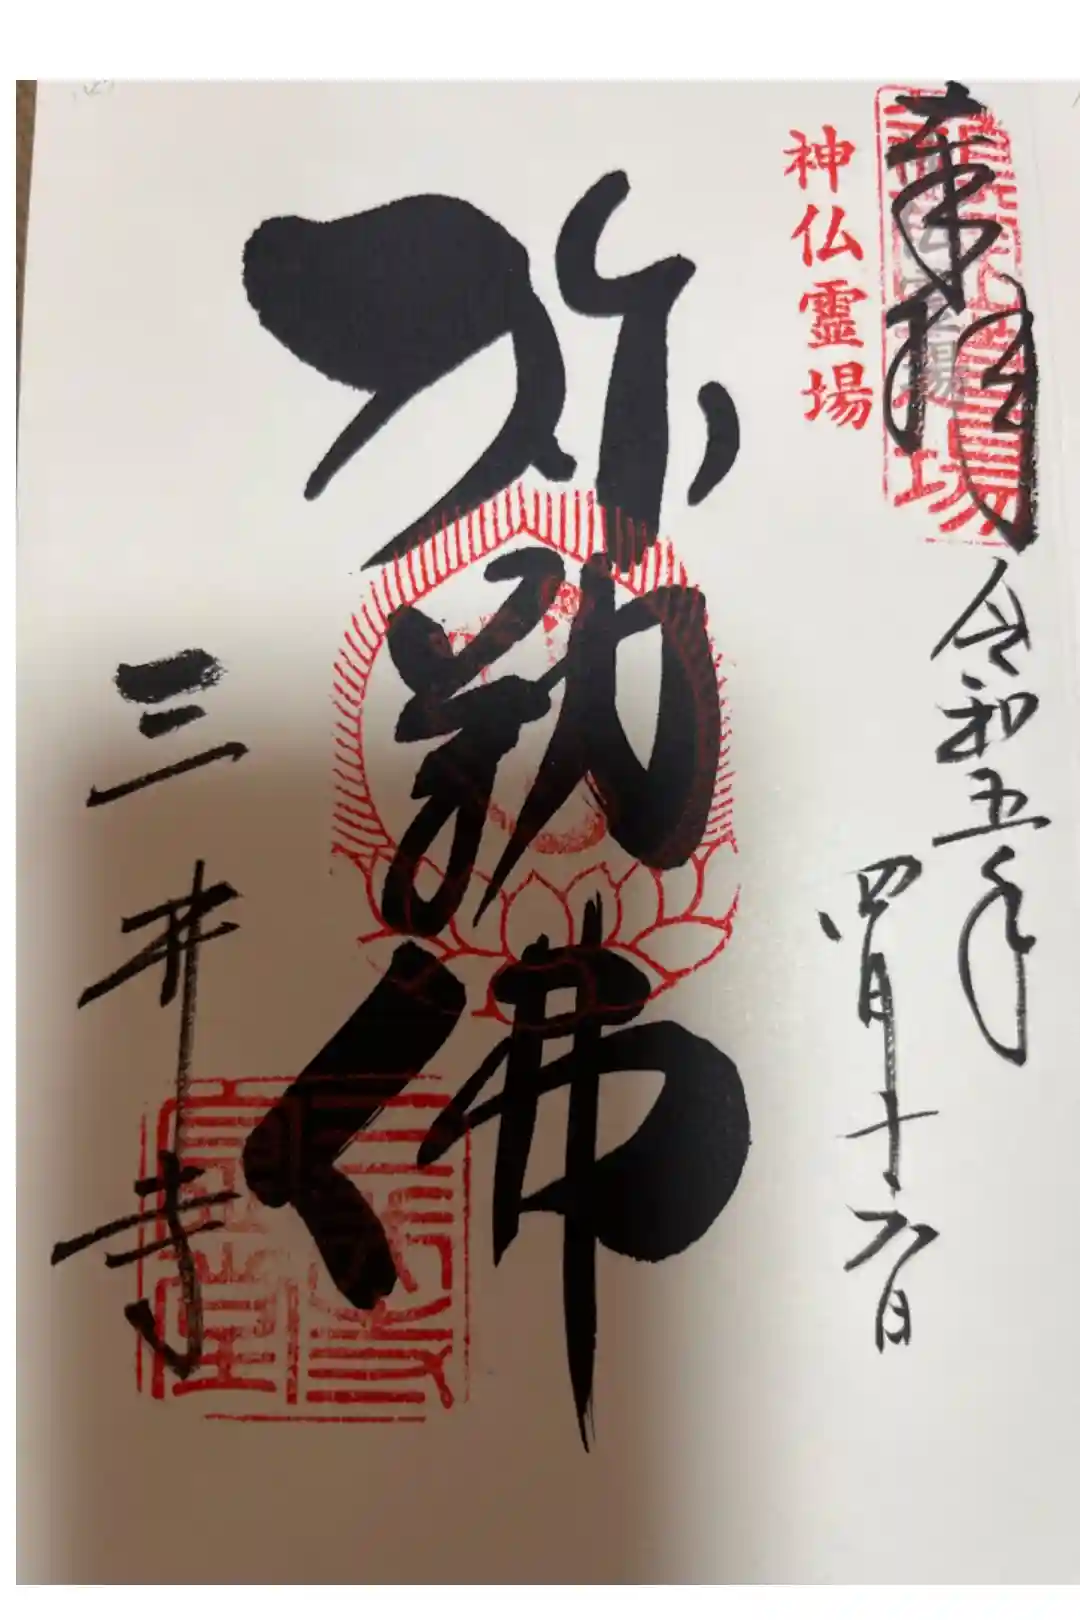 奉拝
令和五年
四月十六日
神仏霊場
弥勒佛
三井寺